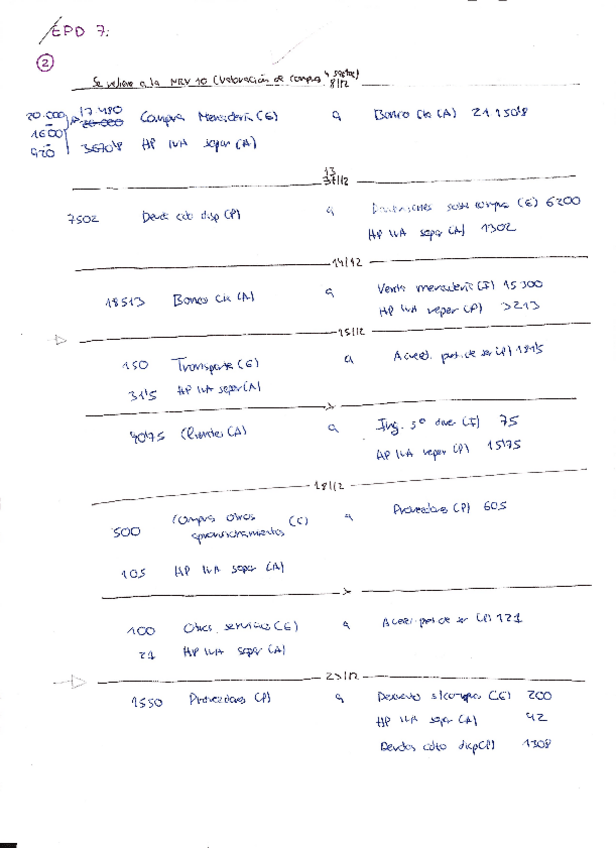 EPD 7:
2
Se refiere a la NRV 10 (Valoración de compras y gastos)
8/12
20.000 17.480 20.000 Compra Mercadería (G) a Banco Cta (A) 21150'8
1600
920 3670'8 HP IVA sopor (A)
13
31/12
7502 Deud cdto disp (P) a sobre compra (G) 6200
HP IVA sopor (A) 1302
14/12
18513 Banco Cta (A) a Venta mercadería (I) 15300
HP IVA reper (P) 3213
15/12
150 Transporte (G) a Acreed. pot. de ser (P) 181'5
31'5 HP IVA sopor (A)
90'75 Clientes (A) a Ing. sº div (I) 75
HP IVA reper (P) 15'75
18/12
500 Compra otros aprovisionamientos (G) a Proveedores (P) 605
105 HP IVA sopor (A)
100 Otros servicios (G) a Acree. pot. de ser (P) 121
21 HP IVA sopor (A)
23/12
1550 Proveedores (P) a Descuento s/compras (G) 200
HP IVA sopor (A) 42
Deudas cdto disp (P) 1308